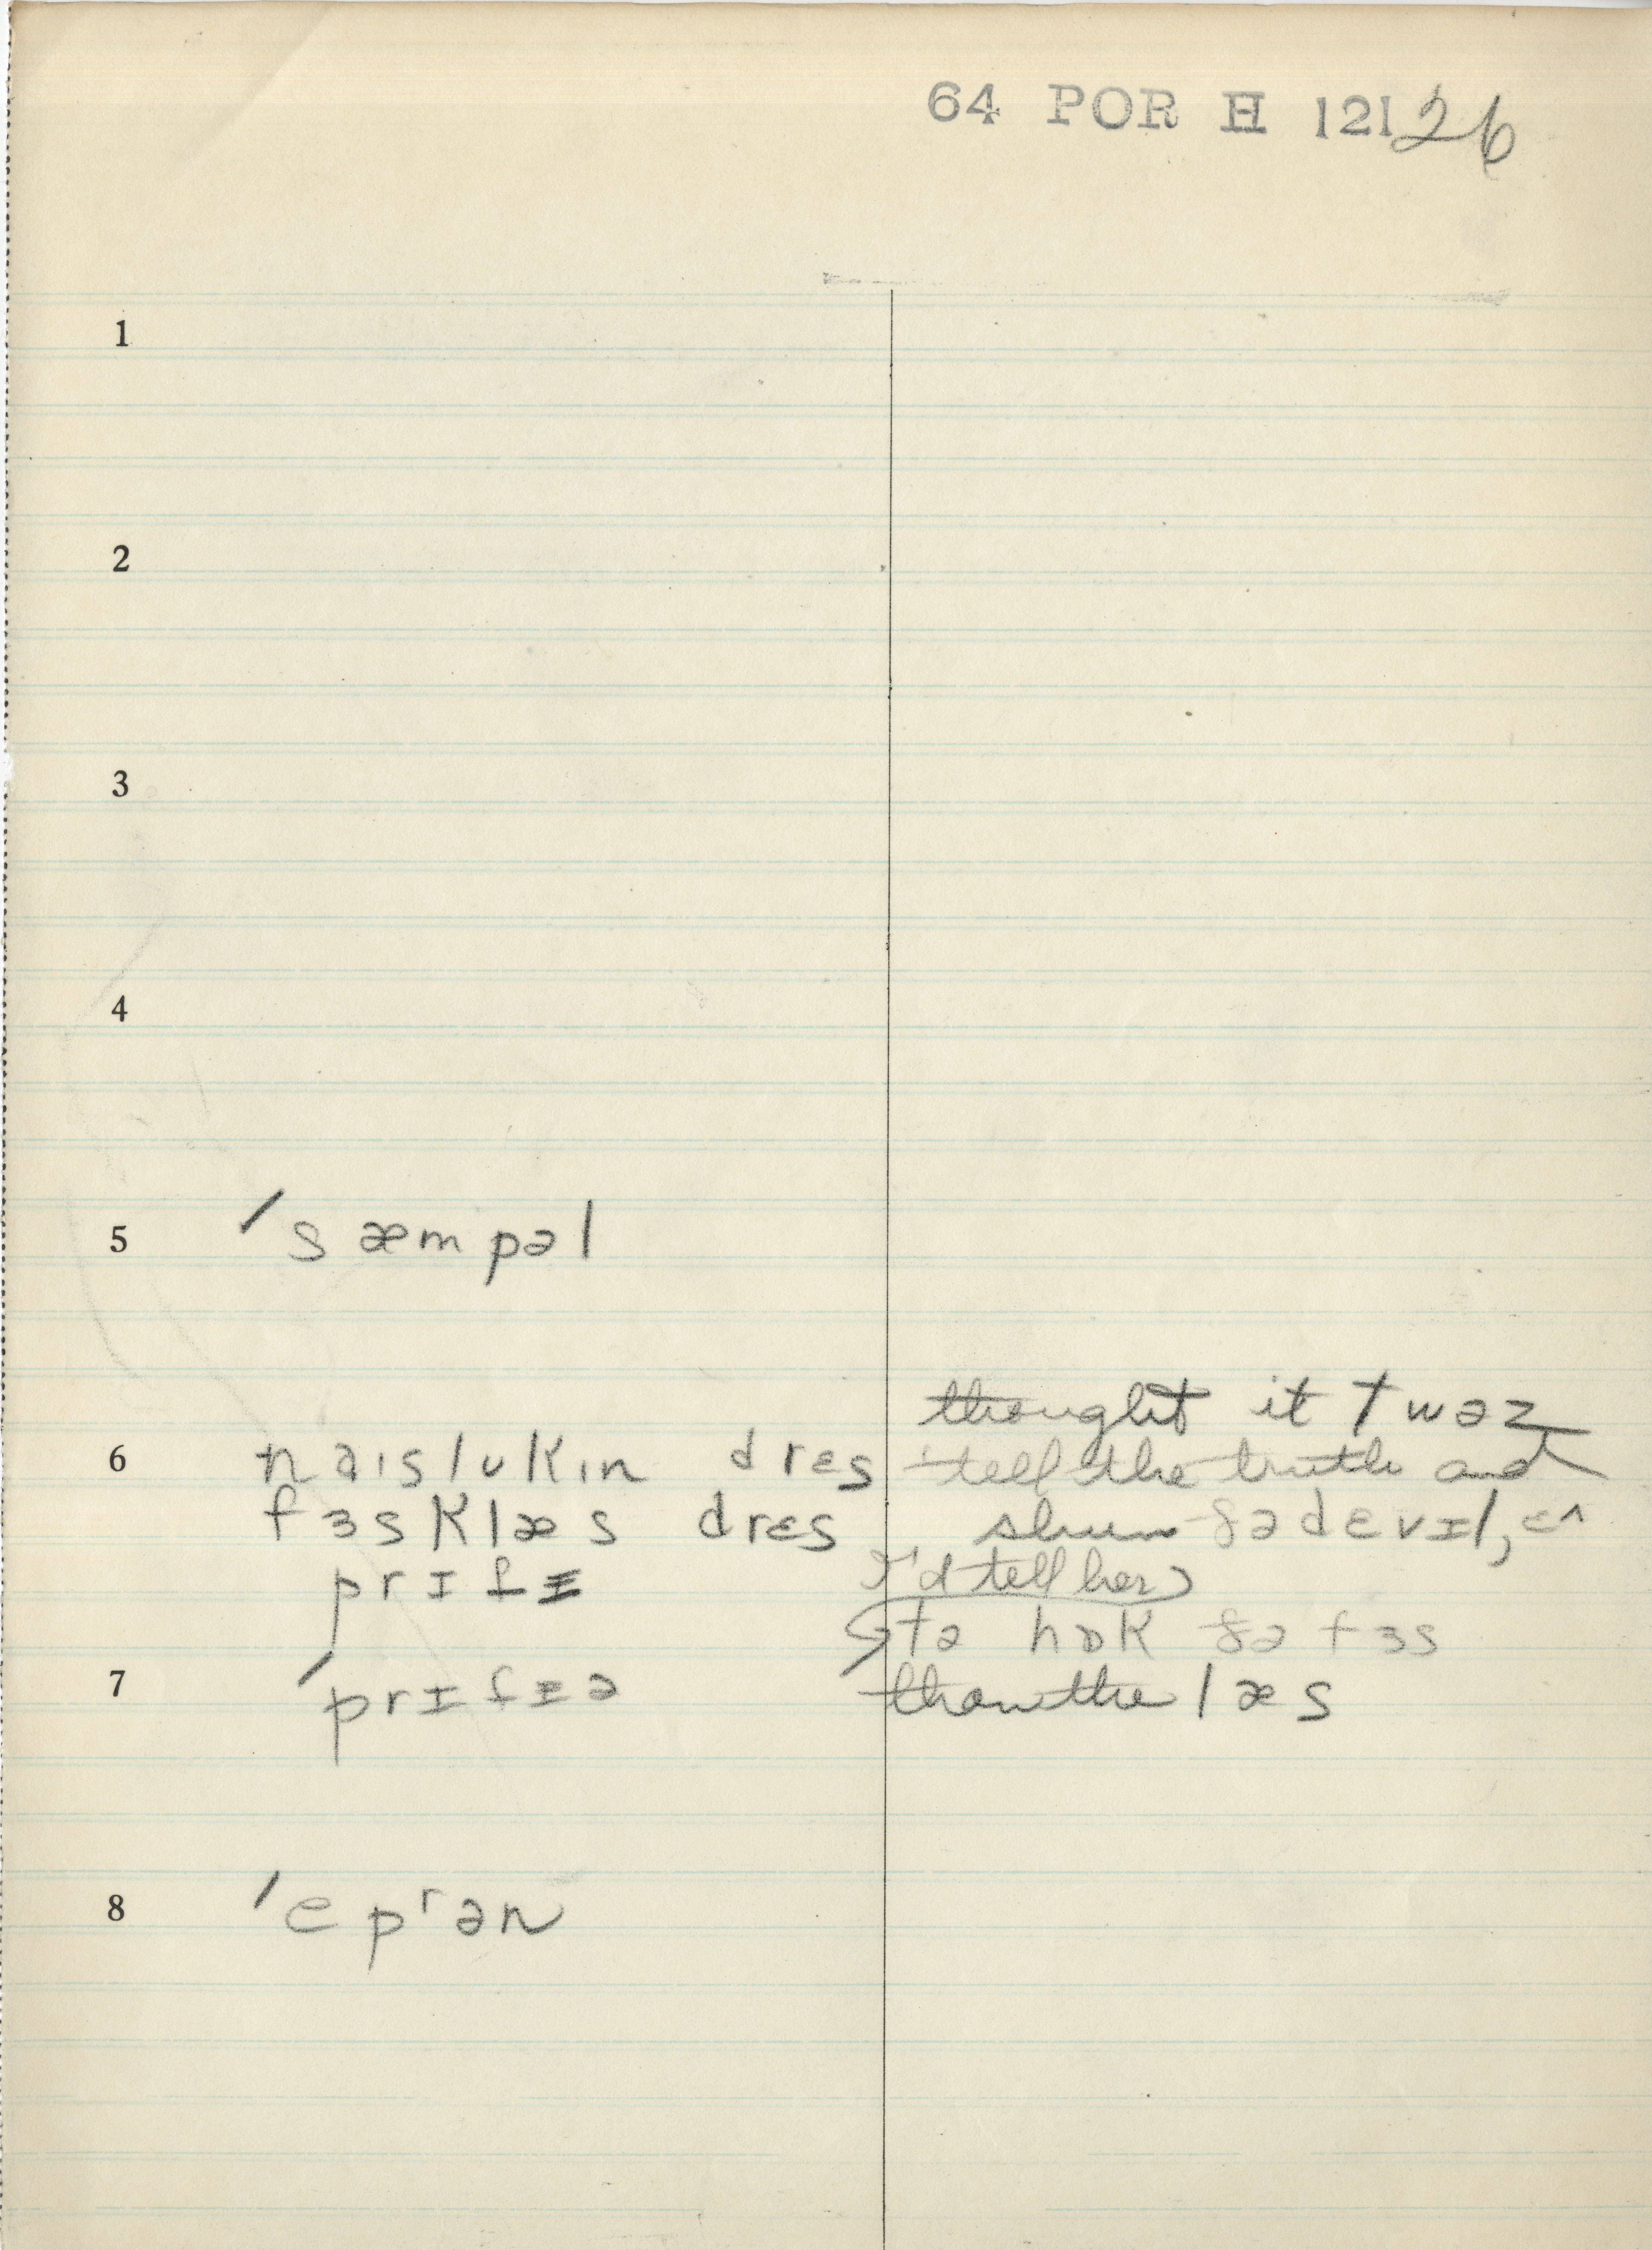 64 POR H 12126
1
2
3
4
5 ˈsæmpəl
6 naɪslʊkɪn drɛs
fɜsklæs drɛs
prɪtɪ
7 ˈprɪtɪə
8 ˈepʳən
thought it twəz
tell the truth and
shun ðə dɛvɪl,
I'd tell her
tə hɒk ðə fɜs
than the læs